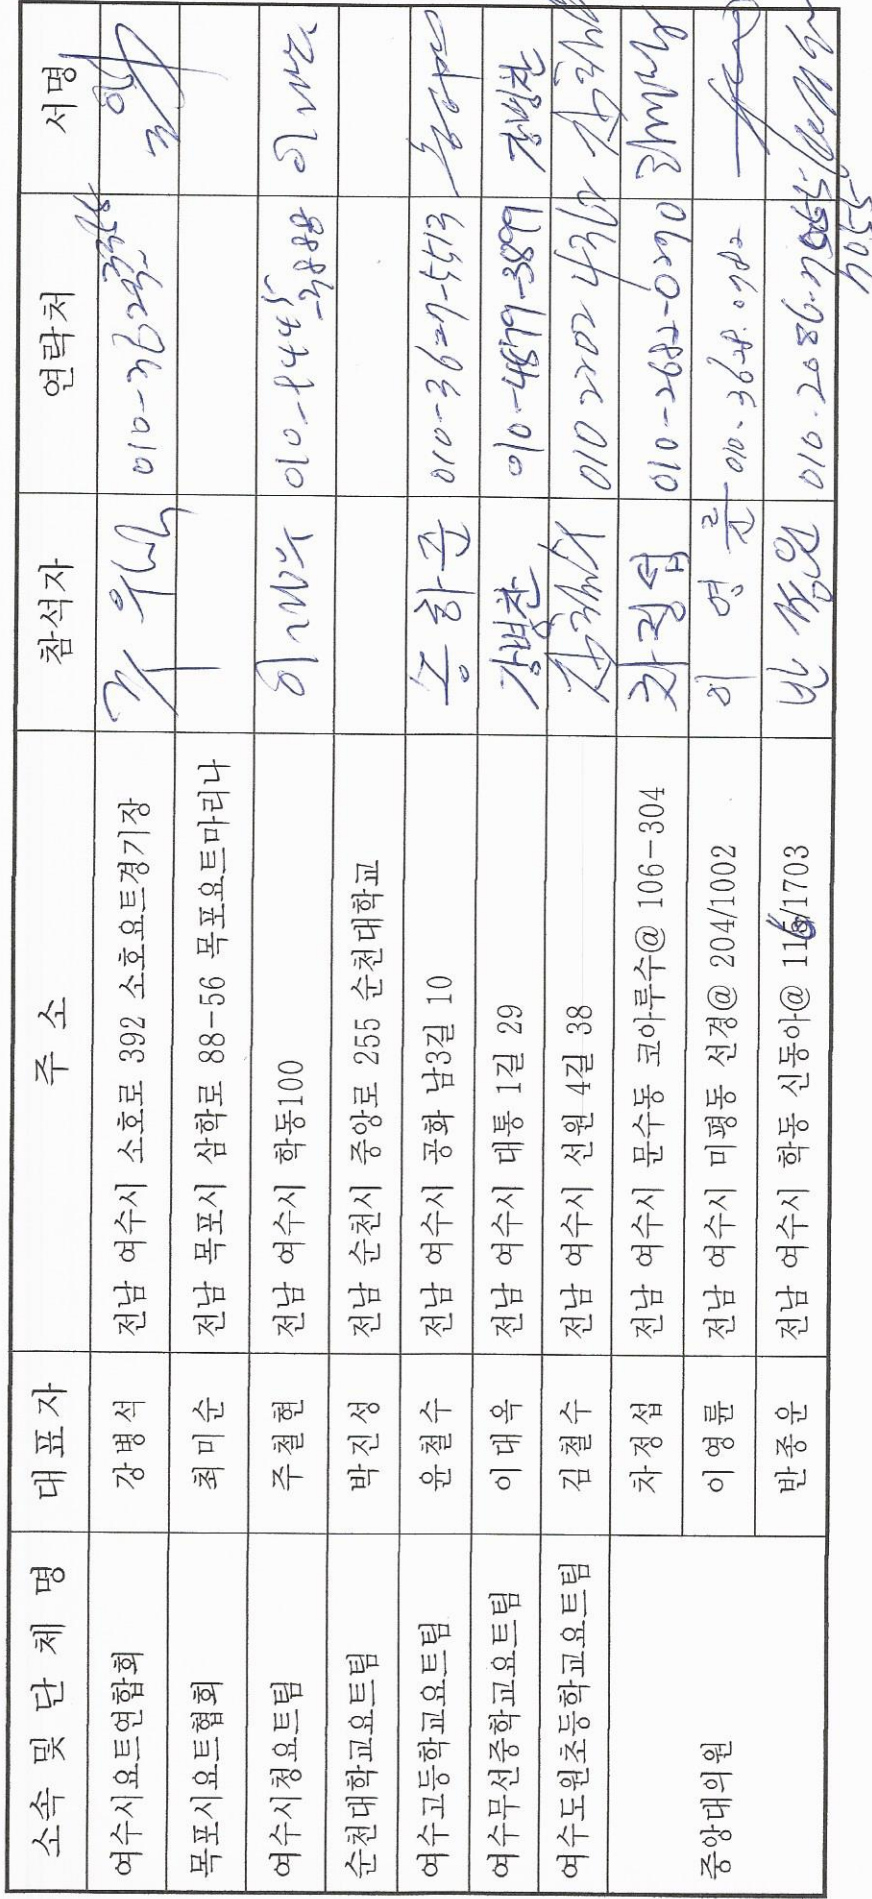 소속 및 단 체 명 대 표 자 주 소 참석자 연락처 서명
여수시요트연합회 강 병 석 전남 여수시 소호로 392 소호요트경기장
목포시요트협회 최 미 순 전남 목포시 삼학로 88-56 목포요트마리나
여수시청요트팀 주 철 현 전남 여수시 학동100
순천대학교요트팀 박 진 성 전남 순천시 중앙로 255 순천대학교
여수고등학교요트팀 윤 철 수 전남 여수시 공화 남3길 10 송하준 010-3627-5513
여수무선중학교요트팀 이 대 옥 전남 여수시 대통 1길 29 강병찬 010-4879-3899 강병찬
여수도원초등학교요트팀 김 철 수 전남 여수시 선원 4길 38
중앙대의원 차 정 섭 전남 여수시 문수동 코아루수@ 106-304 차정섭 010-2682-0290
이 영 륜 전남 여수시 미평동 선경@ 204/1002 이 영 륜 010-3628.0782
반 종 운 전남 여수시 학동 신동아@ 116/1703